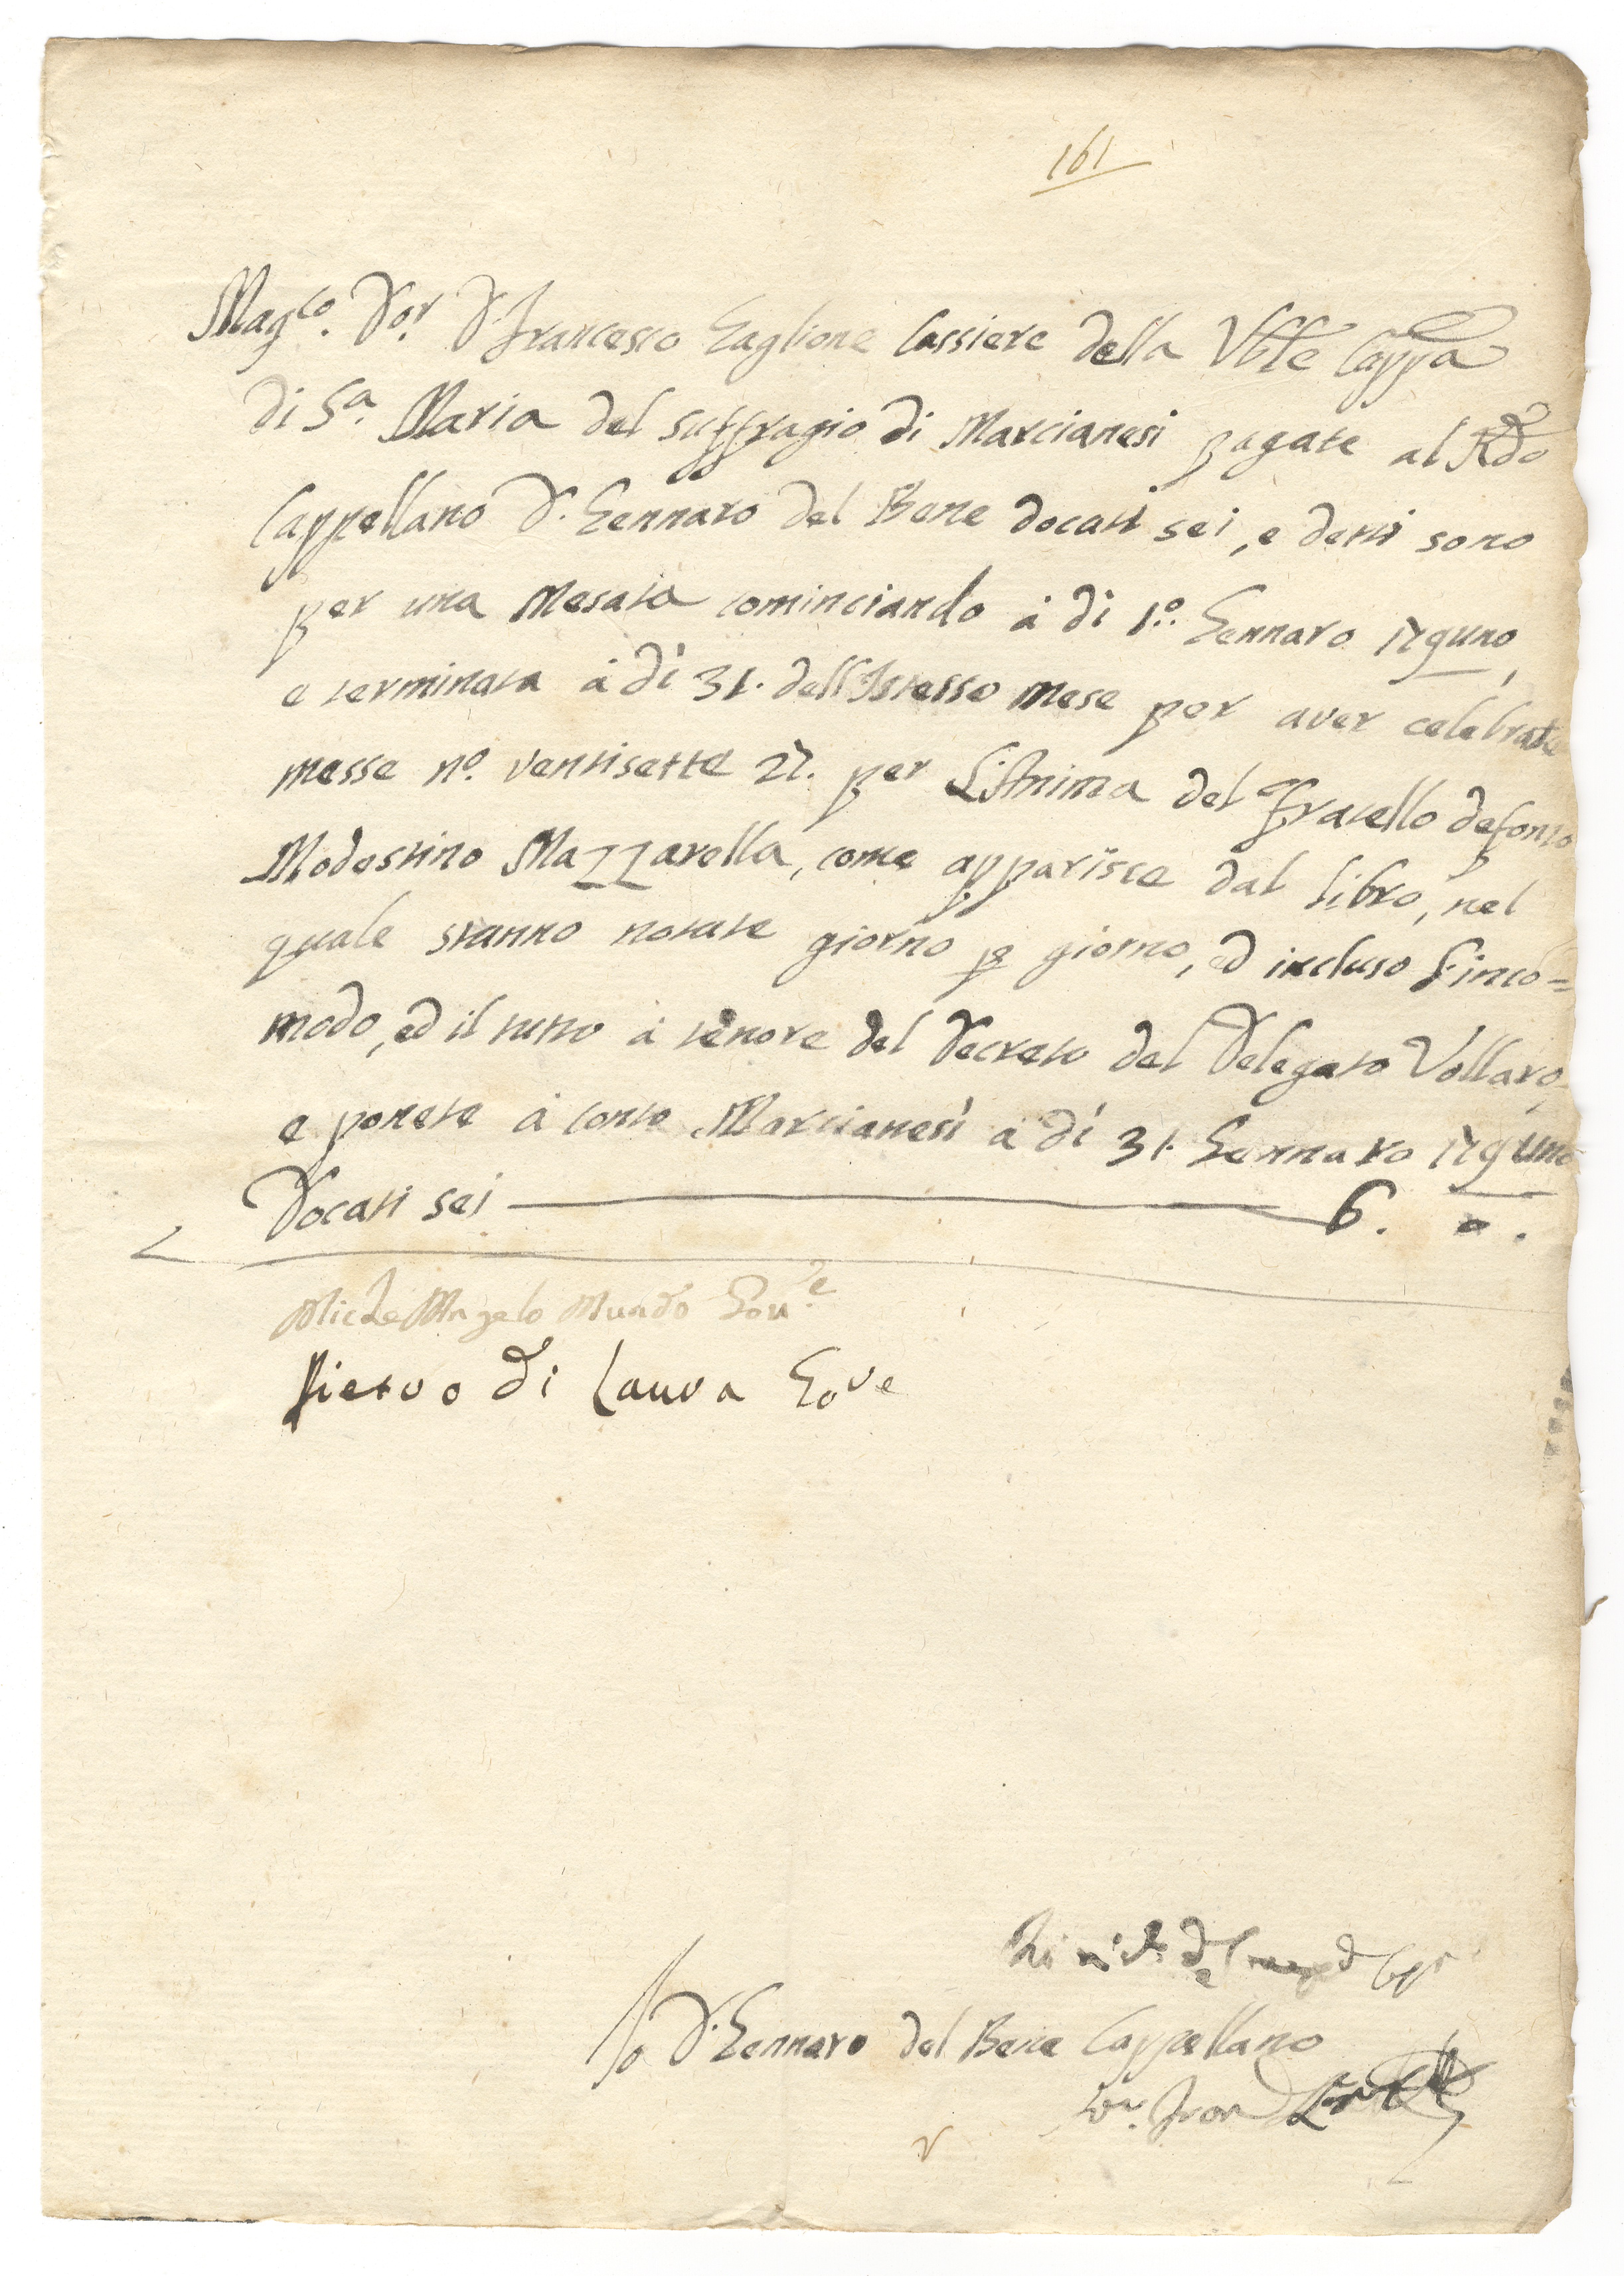 161
Mag.co Dor. D. Francesco Gaglione Cassiere della Vble Cappa
di S.a Maria del suffragio di Marcianesi pagate al Rdo
Cappellano D. Gennaro del Bene docati sei, e detti sono
per una Mesata cominciando à di 1.o Gennaro 179uno,
e terminata à dì 31. dell'Istesso mese per aver celebrate
messe n.o ventisette 27. per L'Anima del fratello defonto
Modestino Mazzarella, come apparisce dal libro, nel
quale stanno notate giorno p giorno, ed incluso l'inco=
modo, ed il tutto à tenore del Decreto del Delegato Vollaro,
e ponete à conto Marcianesi à dì 31. Gennaro 179uno
Docati sei 6. - .
MicheMAngelo Mundo Gov.e
Pietro di Laura Gove
Io D. Gennaro del Bene Cappellano